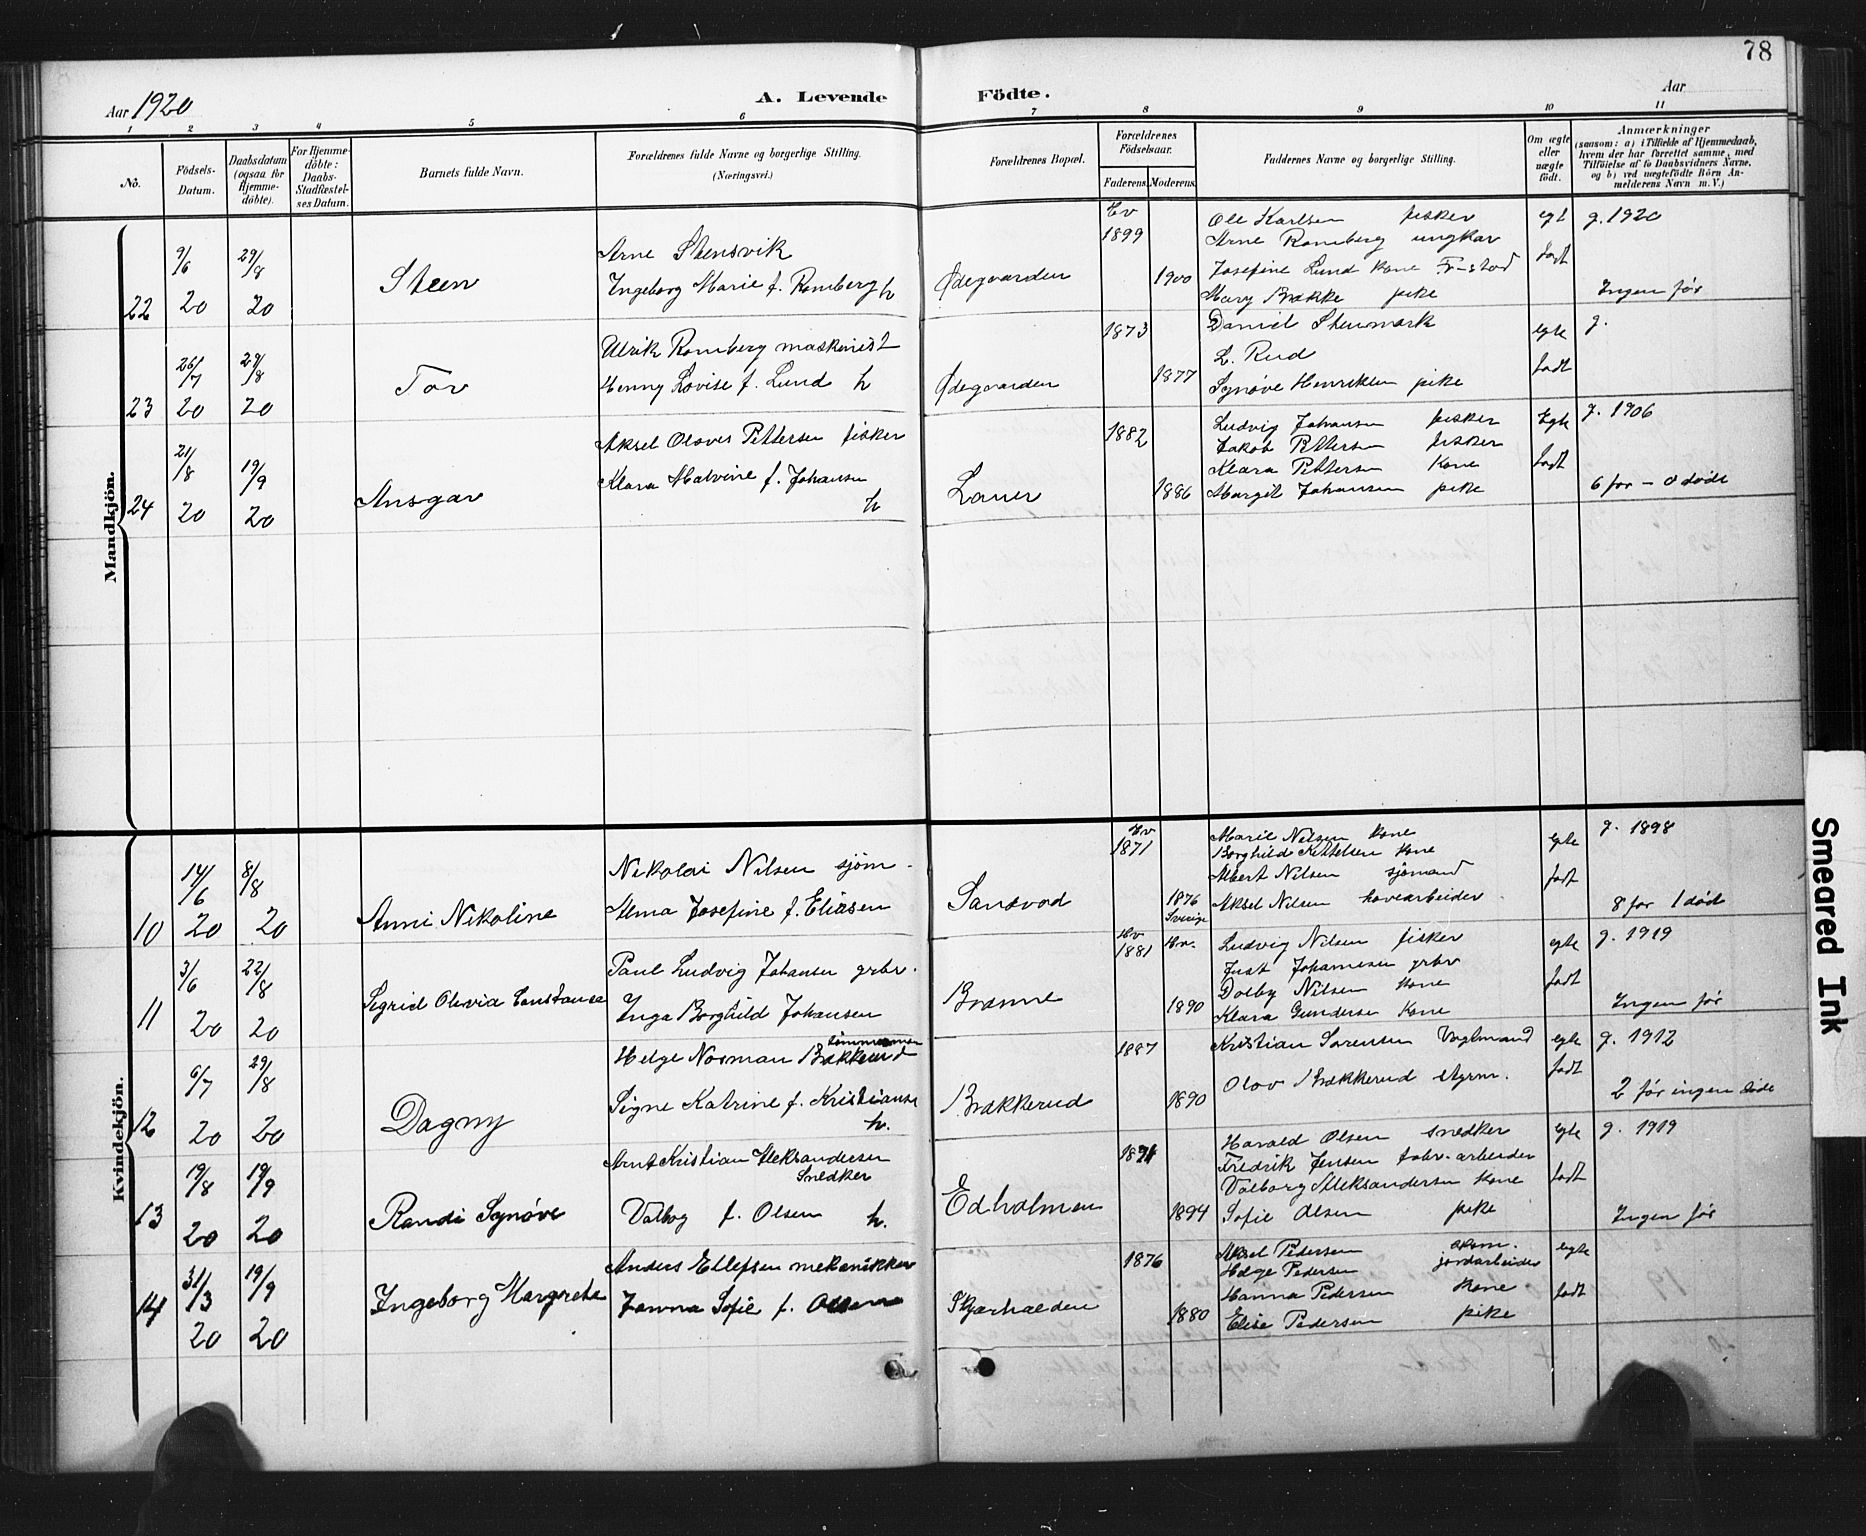 78
Aar 1920
A. Levende Födte.
Aar
1 2 3 4 5 6 7 8 9 10 11
No.
Födsels-Datum.
Daabsdatum (ogsaa for Hjemme-döbte).
For Hjemme-döbte: Daabs-Stadfæstel-ses Datum.
Barnets fulde Navn.
Forældrenes fulde Navne og borgerlige Stilling.
(Næringsvei.)
Forældrenes Bopæl.
Forældrenes Födselsaar.
Faderens. Moderens.
Faddernes Navne og borgerlige Stilling.
Om ægte eller uægte födt.
Anmærkninger
(saasom: a) i Tilfælde af Hjemmedaab,
hvem der har forrettet samme, med
Tilföielse af to Daabsvidners Navne,
og b) ved uægtefödte Börn An-
melderens Navn m. V.)
Mandkjön.
22 9/6 20 29/8 20
Steen
Arne Stensvik
Ingeborg Marie f. Romberg h
Ødegaarden
Hv 1899
1900
Ole Karlsen fisker
Arne Romberg ungkar
Josefine Lund kone Fr-stad
Mary Brække pike
egt født
g. 1920
Ingen før
23 26/7 20 29/8 20
Tor
Ulrik Romberg maskinist
Henny Lovise f. Lund h
Ødegaarden
1873
1877
Daniel Stenmark
L. Rud
Synøve Henriksen pike
egte født
g.
24 21/8 20 19/9 20
Ansgar
Aksel Olaves Pettersen fisker
Klara Malvine f. Johansen
h
Lauer
1882
1886
Ludvig Johansen fisker
Jakob Pettersen fisker
Klara Pettersen kone
Margit Johansen pike
Egte født
g. 1906
6 før - 0 døde
Kvindekjön.
10 14/6 20 8/8 20
Anni Nikoline
Nikolai Nilsen sjøm.
Alma Josefine f. Eliasen
Sandvad
Hv 1871
1876 Sverige
Marie Nilsen kone
Borghild Kittelsen kone
Albert Nilsen sjømand
Aksel Nilsen havearbeider
egte født
g. 1898
8 før 1 død
11 3/6 20 22/8 20
Sigrid Olivia Constanse
Paul Ludvig Johansen grbr.
Inga Borghild Johansen
Bramme
Hv 1881
Hv. 1890
Ludvig Nilsen fisker
Just Johannesen grbr
Dolby Nilsen kone
Klara Gundersen kone
egte født
g. 1919
Ingen før
12 6/7 20 29/8 20
Dagny
Helge Norman Bækkerud tømmerman
Signe Katrine f. Kristiansen
h.
Brækkerud
1887
1890
Kristian Sørensen Vagtmand
Olov Brækkerud styrm.
egte født
g. 1912
2 før ingen døde
13 19/8 20 19/9 20
Randi Synøve
Arnt Kristian Aleksandersen
Snedker
Valborg f. Olsen h.
Edholmen
1891
1894
Harald Olsen snedker
Fredrik Jensen fabr.arbeider
Valborg Aleksandersen kone
Sofie Olsen pike
egte født
g. 1919
Ingen før
14 31/3 20 19/9 20
Ingeborg Margrete
Anders Ellefsen mekanikker
Janna Sofie f. Olsen
Skjærhalden
1876
1880
Aksel Pedersen
Helge Pedersen jordarbeider
Hanna Pedersen kone
Elise Pedersen pike
egte født
Smeared Ink